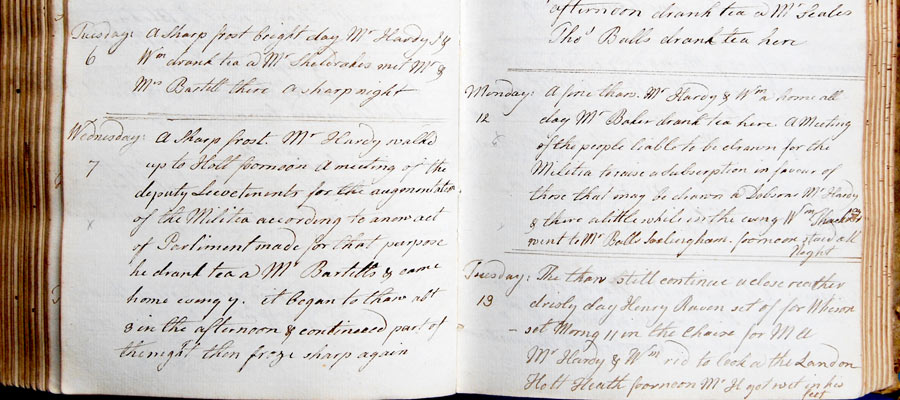 Tuesday: A Sharp frost bright day Mr Hardy I &
6 Wm drank tea a Mr Sheldrakes met Mr &
Mrs Bartell there A sharp night
Wednesday: A Sharp frost. Mr Hardy walkd
7 up to Holt foornoon A meeting of the
deputy Lievetenents for the augmentation
of the Militia according to a now act
of Parliment made for that purpose
he drank tea a Mr Bartells & came
home eveng 7. it began to thaw abt
3 in the afternoon & continued part of
the night then froze sharp again
afternoon drank tea a Mr Teales
Thos Balls drank tea here
Monday: A fine thaw. Mr Hardy & Wm a home all
12 day Mr Baker drank tea here. A Meeting
of the people liable to be drawn for the
Militia to raise a Subscription in favour of
those that may be drawn a Dobsons Mr Hardy
& there a little while in the eveng Wm
went to Mr Balls Saxlingham foornoon, staid all
Night
Tuesday: The thaw still continue a close reather
13 drisly day Henry Raven set of for Whissonset
Morng 11 in the Chaise for M A
Mr Hardy & Wm rid to look a the Land on
Holt Heath foornoon Mr H got wet in his
feet